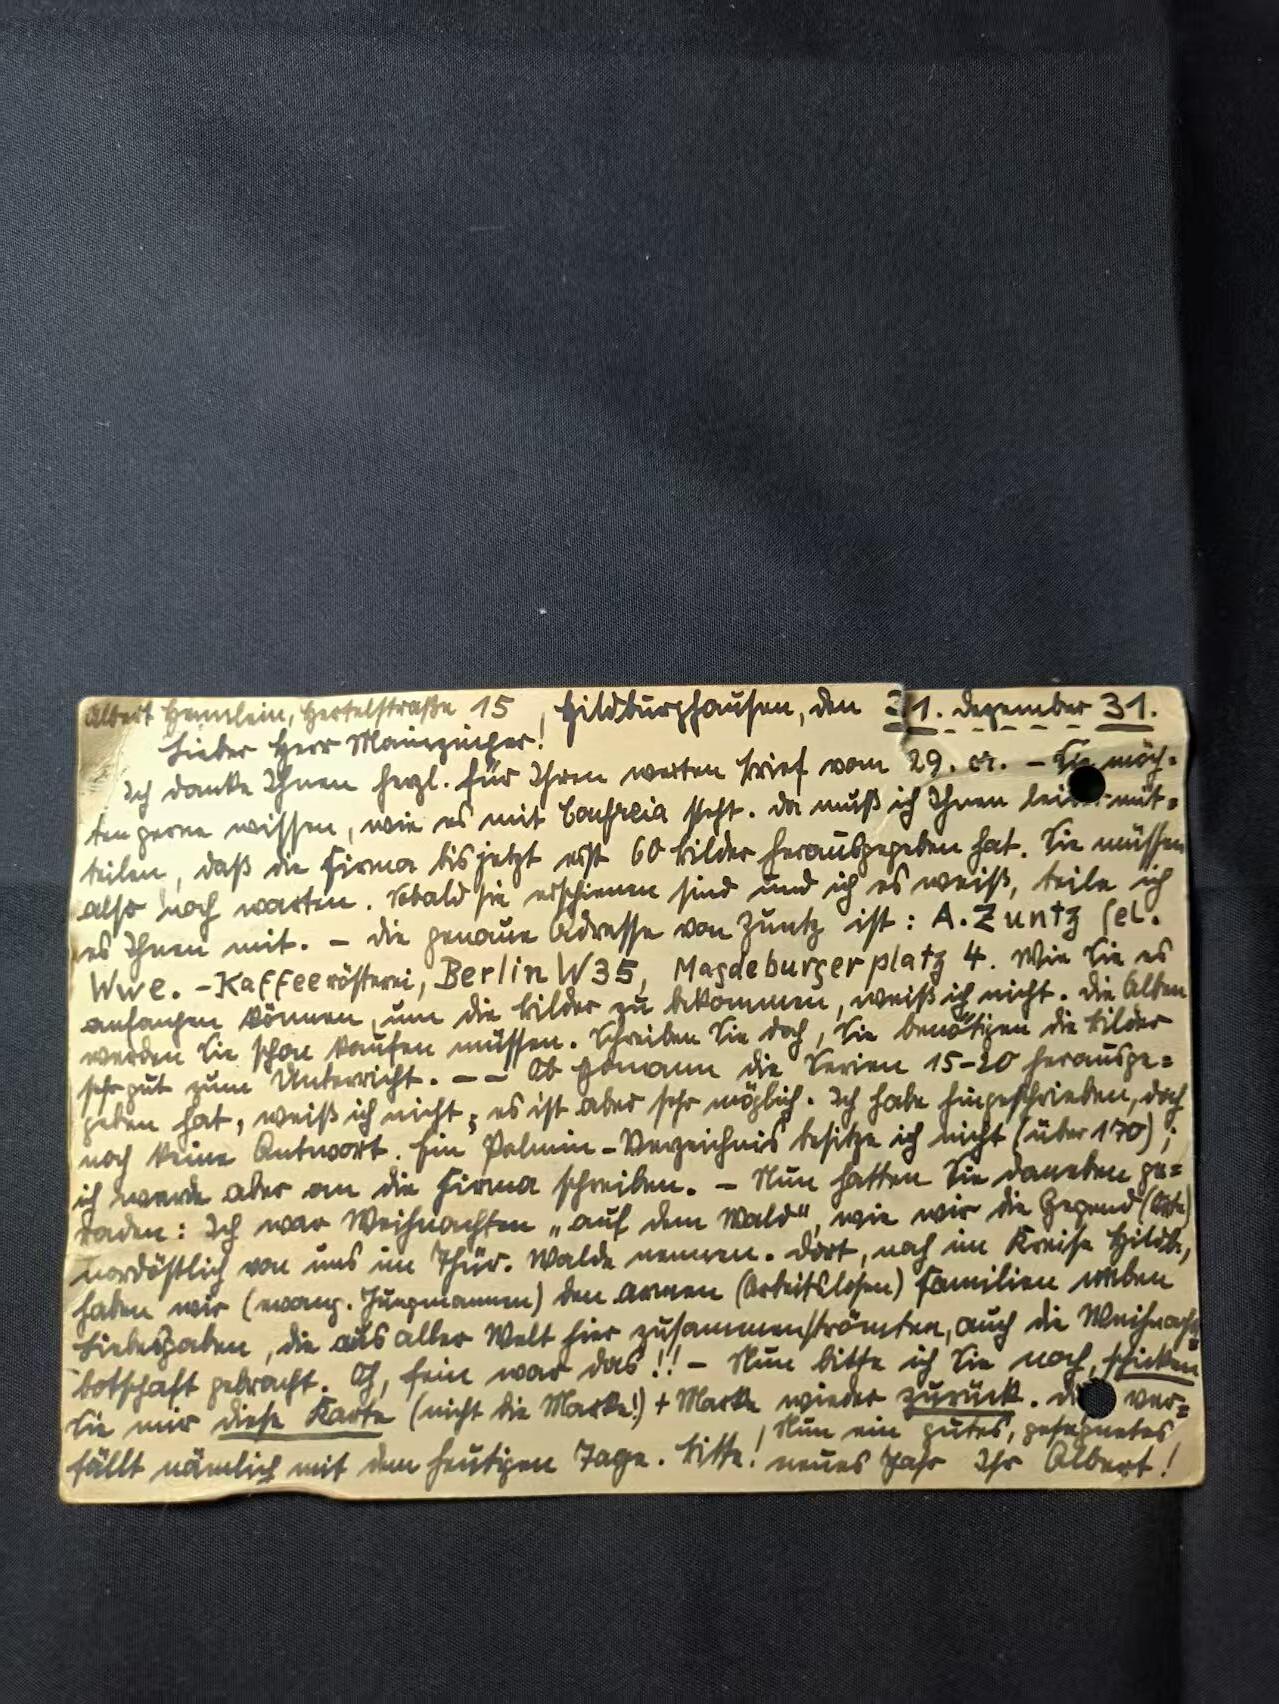 Albert Hennlein, Hertelstraße 15, Hildburghausen, den 31. Dezember 31.
Lieber Herr Mainzinger!
Ich danke Ihnen herzl. für Ihren werten Brief vom 29. cr. – Sie möch=
ten gerne wissen, wie es mit steht. Da muß ich Ihnen leider mit=
teilen, daß die Firma bis jetzt erst 60 Bilder herausgegeben hat. Sie müssen
also noch warten. Sobald sie erschienen sind und ich es weiß, teile ich
es Ihnen mit. – Die genaue Adresse von Zuntz ist: A. Zuntz sel.
Wwe. – Kaffeerösterei, Berlin W35, Magdeburgerplatz 4. Wie Sie es
anfangen können, um die Bilder zu bekommen, weiß ich nicht. Die Alben
werden Sie schon kaufen müssen. Schreiben Sie doch, Sie benötigen die Bilder
sehr gut zum Unterricht. – – Ob Homann die Serien 15–20 herausge=
geben hat, weiß ich nicht; es ist aber sehr möglich. Ich habe hingeschrieben, doch
noch keine Antwort. Ein Palmin-Verzeichnis besitze ich nicht (über 170);
ich werde aber an die Firma schreiben. – Nun hatten Sie daneben ge=
raten: Ich war Weihnachten „auf dem Wald", wie wir die Gegend (Orte)
nordöstlich von uns im Thür. Walde nennen. Dort, noch im Kreise Hildb.,
haben wir (evang. Jungmannen) den armen (Arbeitslosen) Familien neben
Liebesgaben, die aus aller Welt hier zusammenströmten, auch die Weihnachts=
botschaft gebracht. Oh, fein war das!! – Nun bitte ich Sie noch, schicken
Sie mir diese Karte (nicht die Marke!) + Marke wieder zurück. Die ver=
fällt nämlich mit dem heutigen Tage. Bitte! Nun ein gutes, gesegnetes
neues Jahr Ihr Albert!